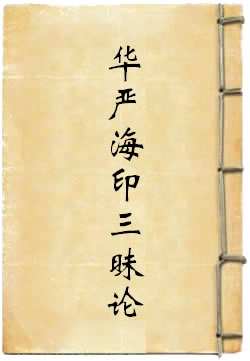 华严海印三昧论